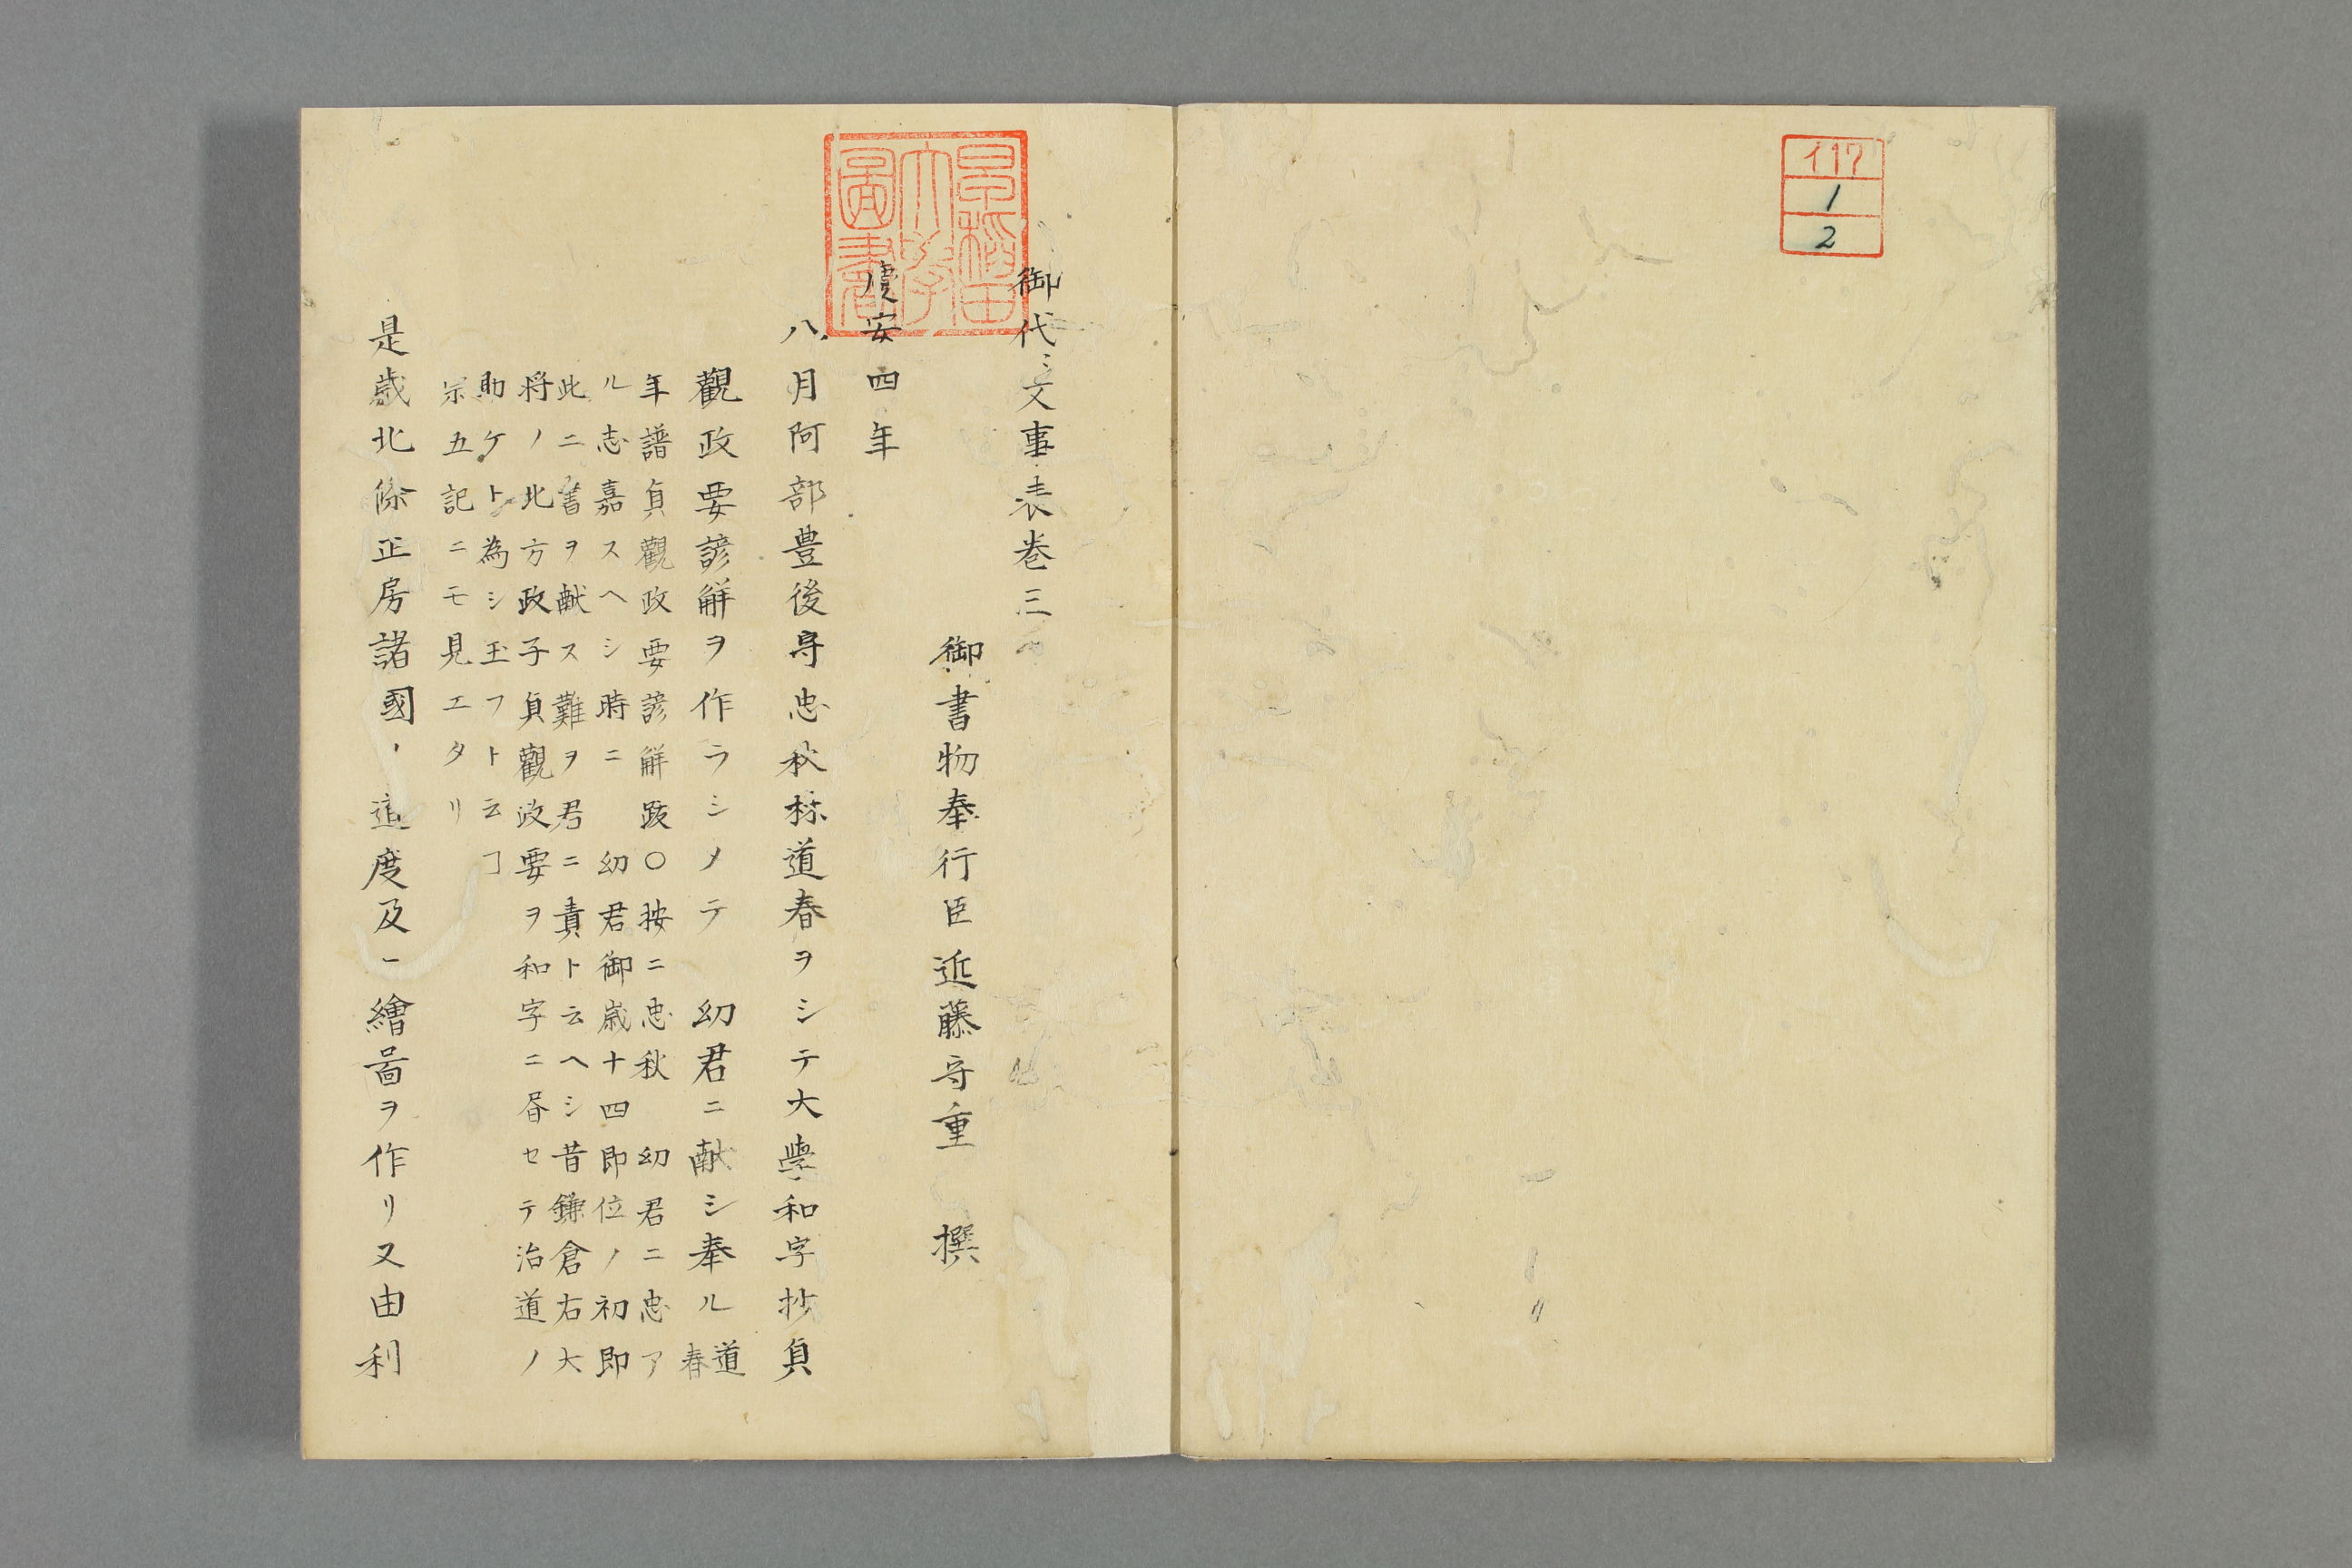 イ17
1
2
早稲田
大學
圖書
御代〻文事表巻三
御書物奉行臣近藤守重 撰
慶安四年
八月阿部豊後守忠秋林道春ヲシテ大學和字抄貞
觀政要諺解ヲ作ラシメテ 幼君ニ献シ奉ル道春
年譜貞觀政要諺解跋〇按ニ忠秋 幼君ニ忠ア
ル志嘉スヘシ時ニ 幼君御歳十四即位ノ初即
此ニ書ヲ献ス難ヲ君ニ責ト云ヘシ昔鎌倉右大
将ノ北方政子貞觀政要ヲ和字ニ𦥑セテ治道ノ
助ケト為シ玉フト云ヿ
宗五記ニモ見エタリ
是歳北條正房諸國ノ道度及ヒ繪啚ヲ作リ又由利